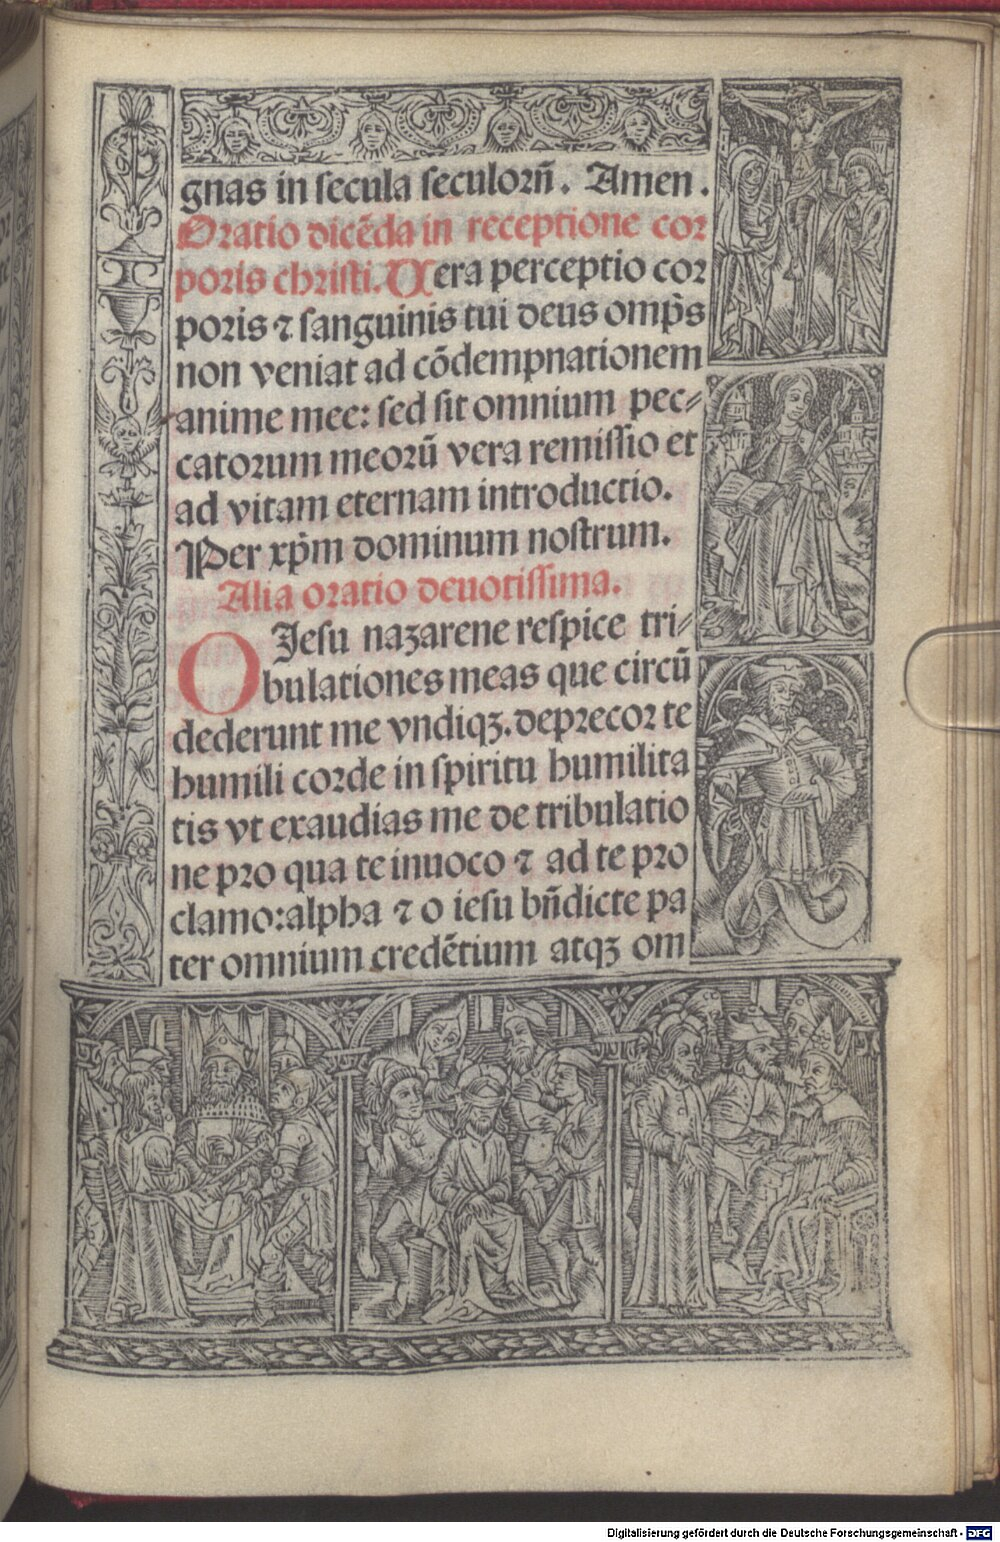 gnas in secula seculorũ. Amen.
Oratio dicẽda in receptione cor
poris christi. Vera perceptio cor
poris ⁊ sanguinis tui deus omp̃s
non veniat ad cõdempnationem
anime mee: sed sit omnium pec⸗
catorum meorũ vera remissio et
ad vitam eternam introductio.
Per xp̃m dominum nostrum.
Alia oratio deuotissima.
O Jesu nazarene respice tri⸗
bulationes meas que circũ
dederunt me vndiqꝫ. deprecor te
humili corde in spiritu humilita
tis vt exaudias me de tribulatio
ne pro qua te inuoco ⁊ ad te pro
clamo: alpha ⁊ o iesu bñdicte pa
ter omnium credẽtium atqꝫ om
Digitalisierung gefördert durch die Deutsche Forschungsgemeinschaft - DFG